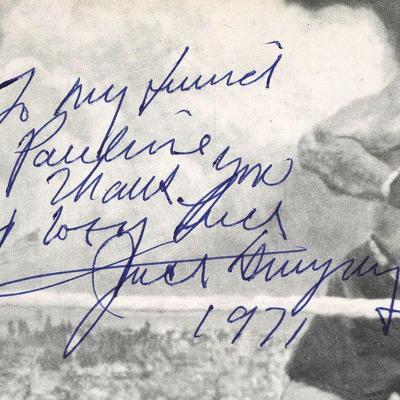 To my friend
Pauline
Thank you
Jack Dempsey
1971